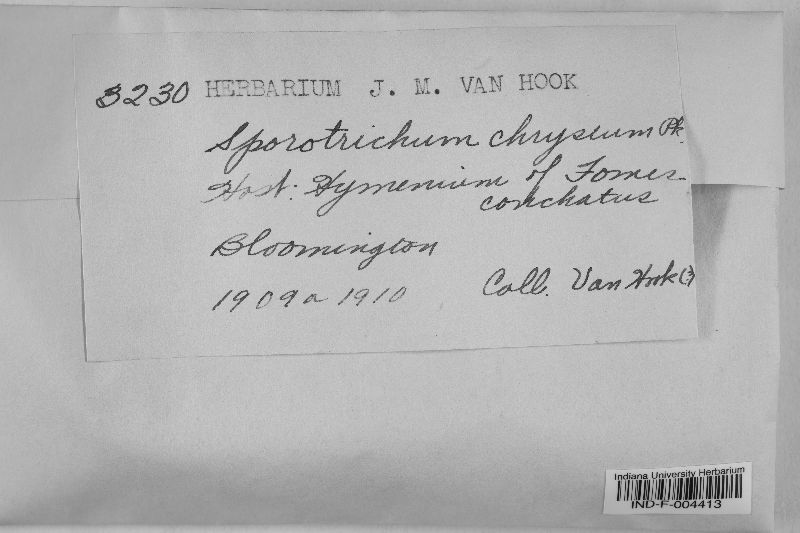 3230 HERBARIUM J. M. VAN HOOK
Sporotrichum chryseum Pk.
Host: Hymenium of Fomes
conchatus
Bloomington
1909 a 1910 Coll. Van Hook (3)
Indiana University Herbarium
IND-F-004413